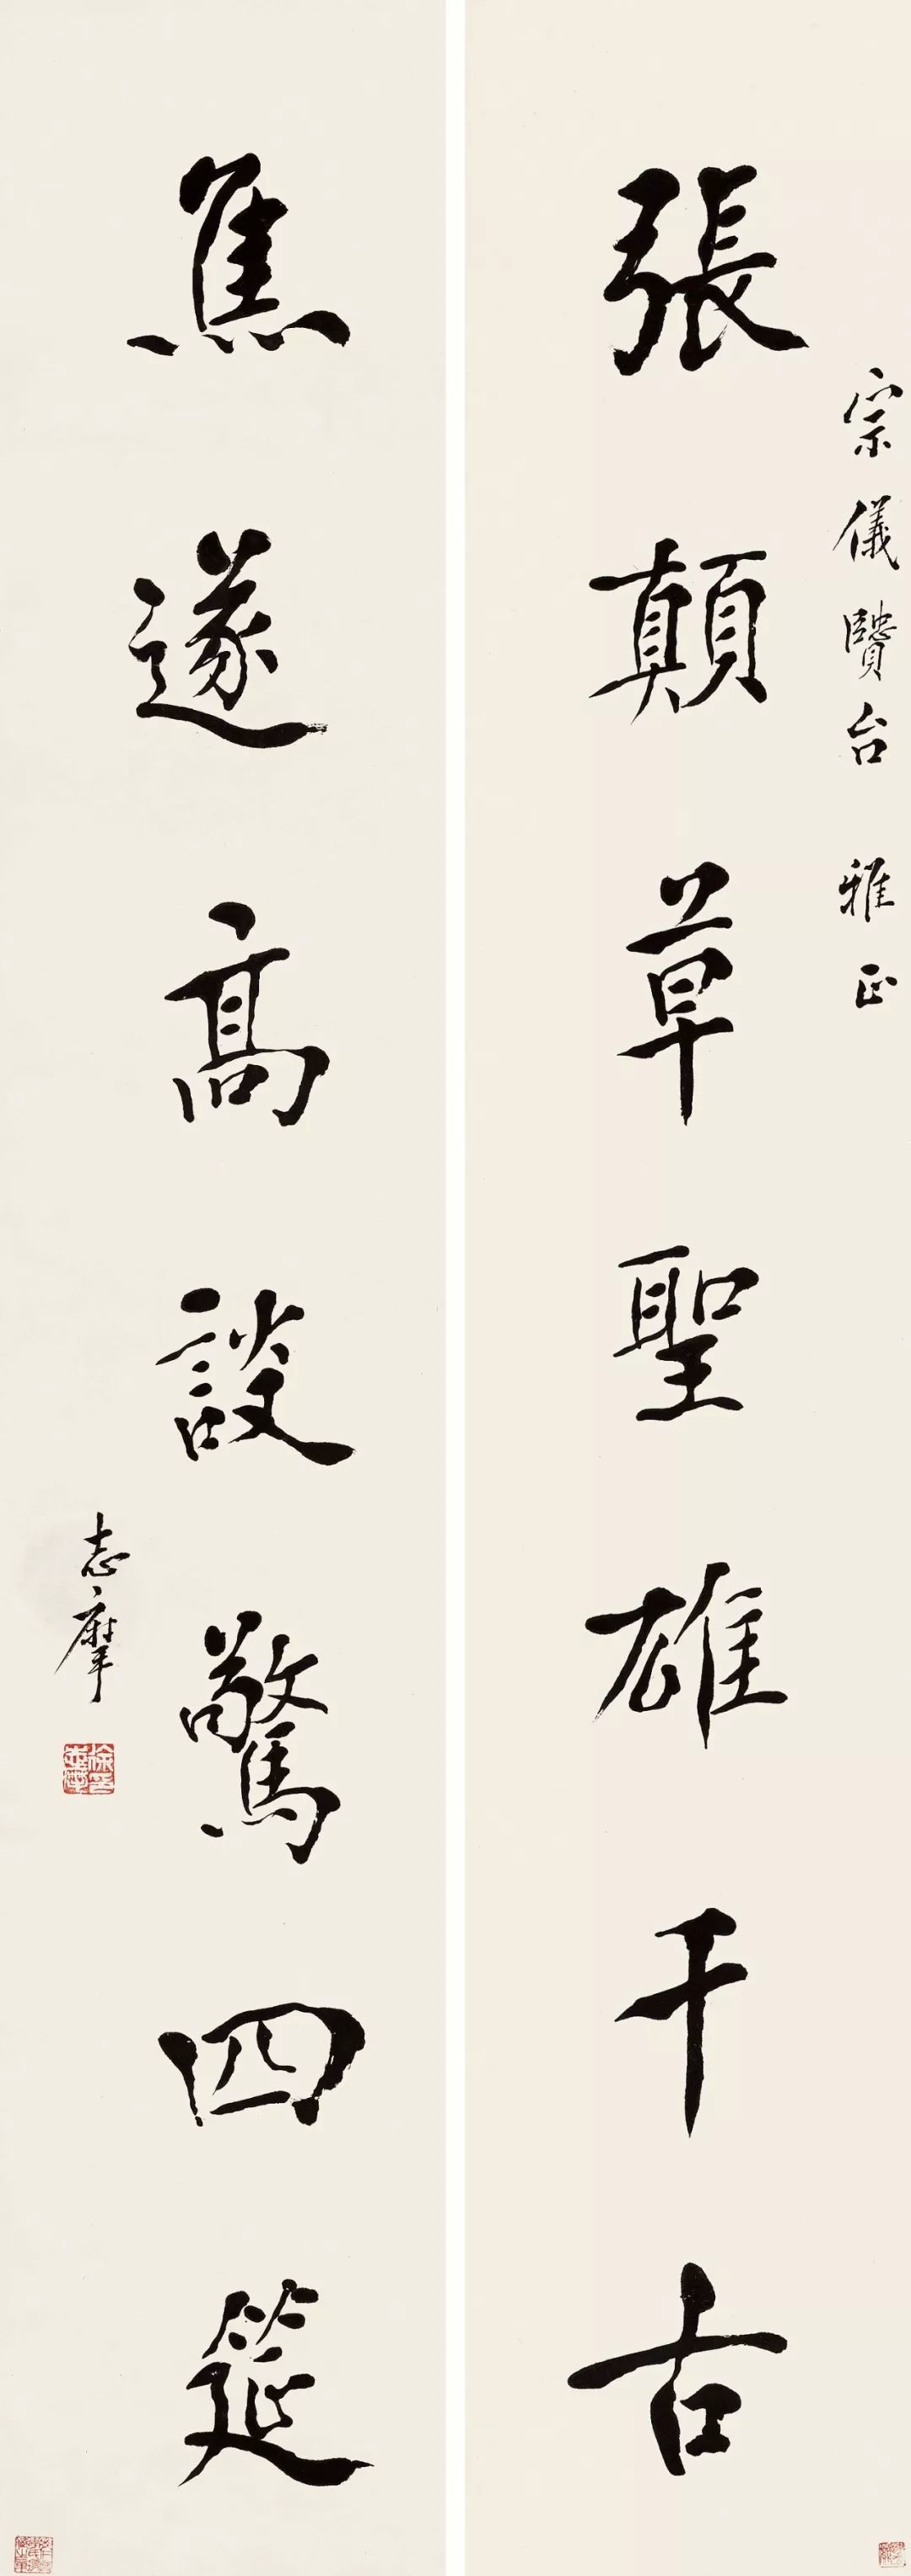 宗儀賢台 雅正
張顛草聖雄千古
焦遂高談驚四筵
志摩